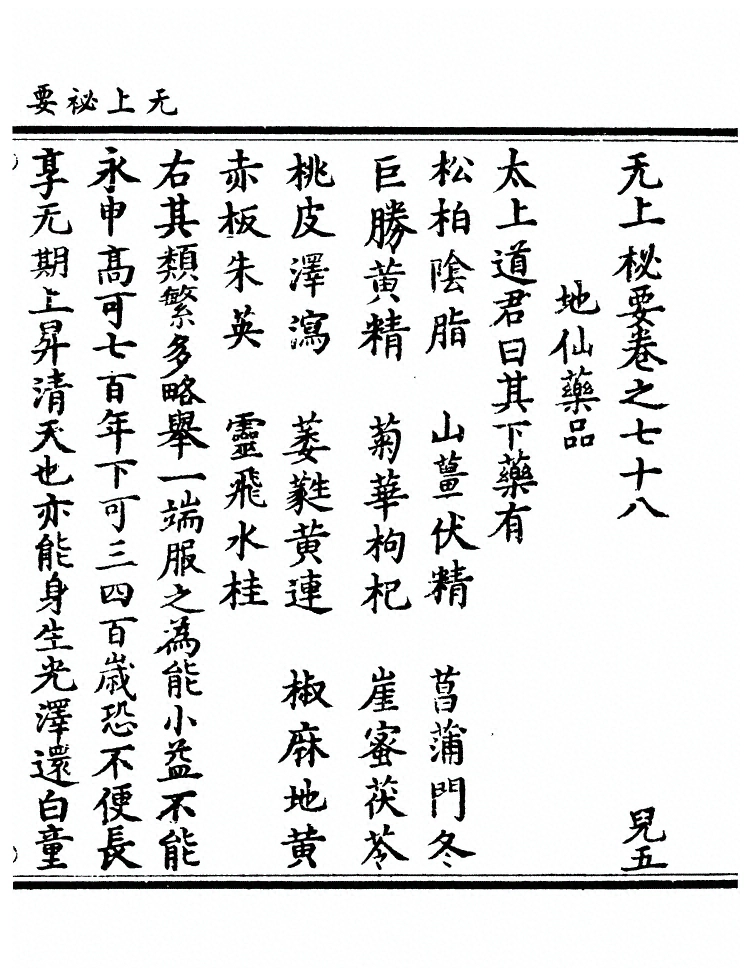 无上祕要
无上祕要卷之七十八 兒五
地仙藥品
太上道君曰其下藥有
松柏陰脂 山薑伏精 菖蒲門冬
巨勝黃精 菊華枸杞 崖蜜茯苓
桃皮澤瀉 萎蕤黃連 椒麻地黃
赤板朱英 靈飛水桂
右其類繁多略舉一端服之為能小益不能
永申高可七百年下可三四百歲恐不便長
享无期上昇清天也亦能身生光澤還白童